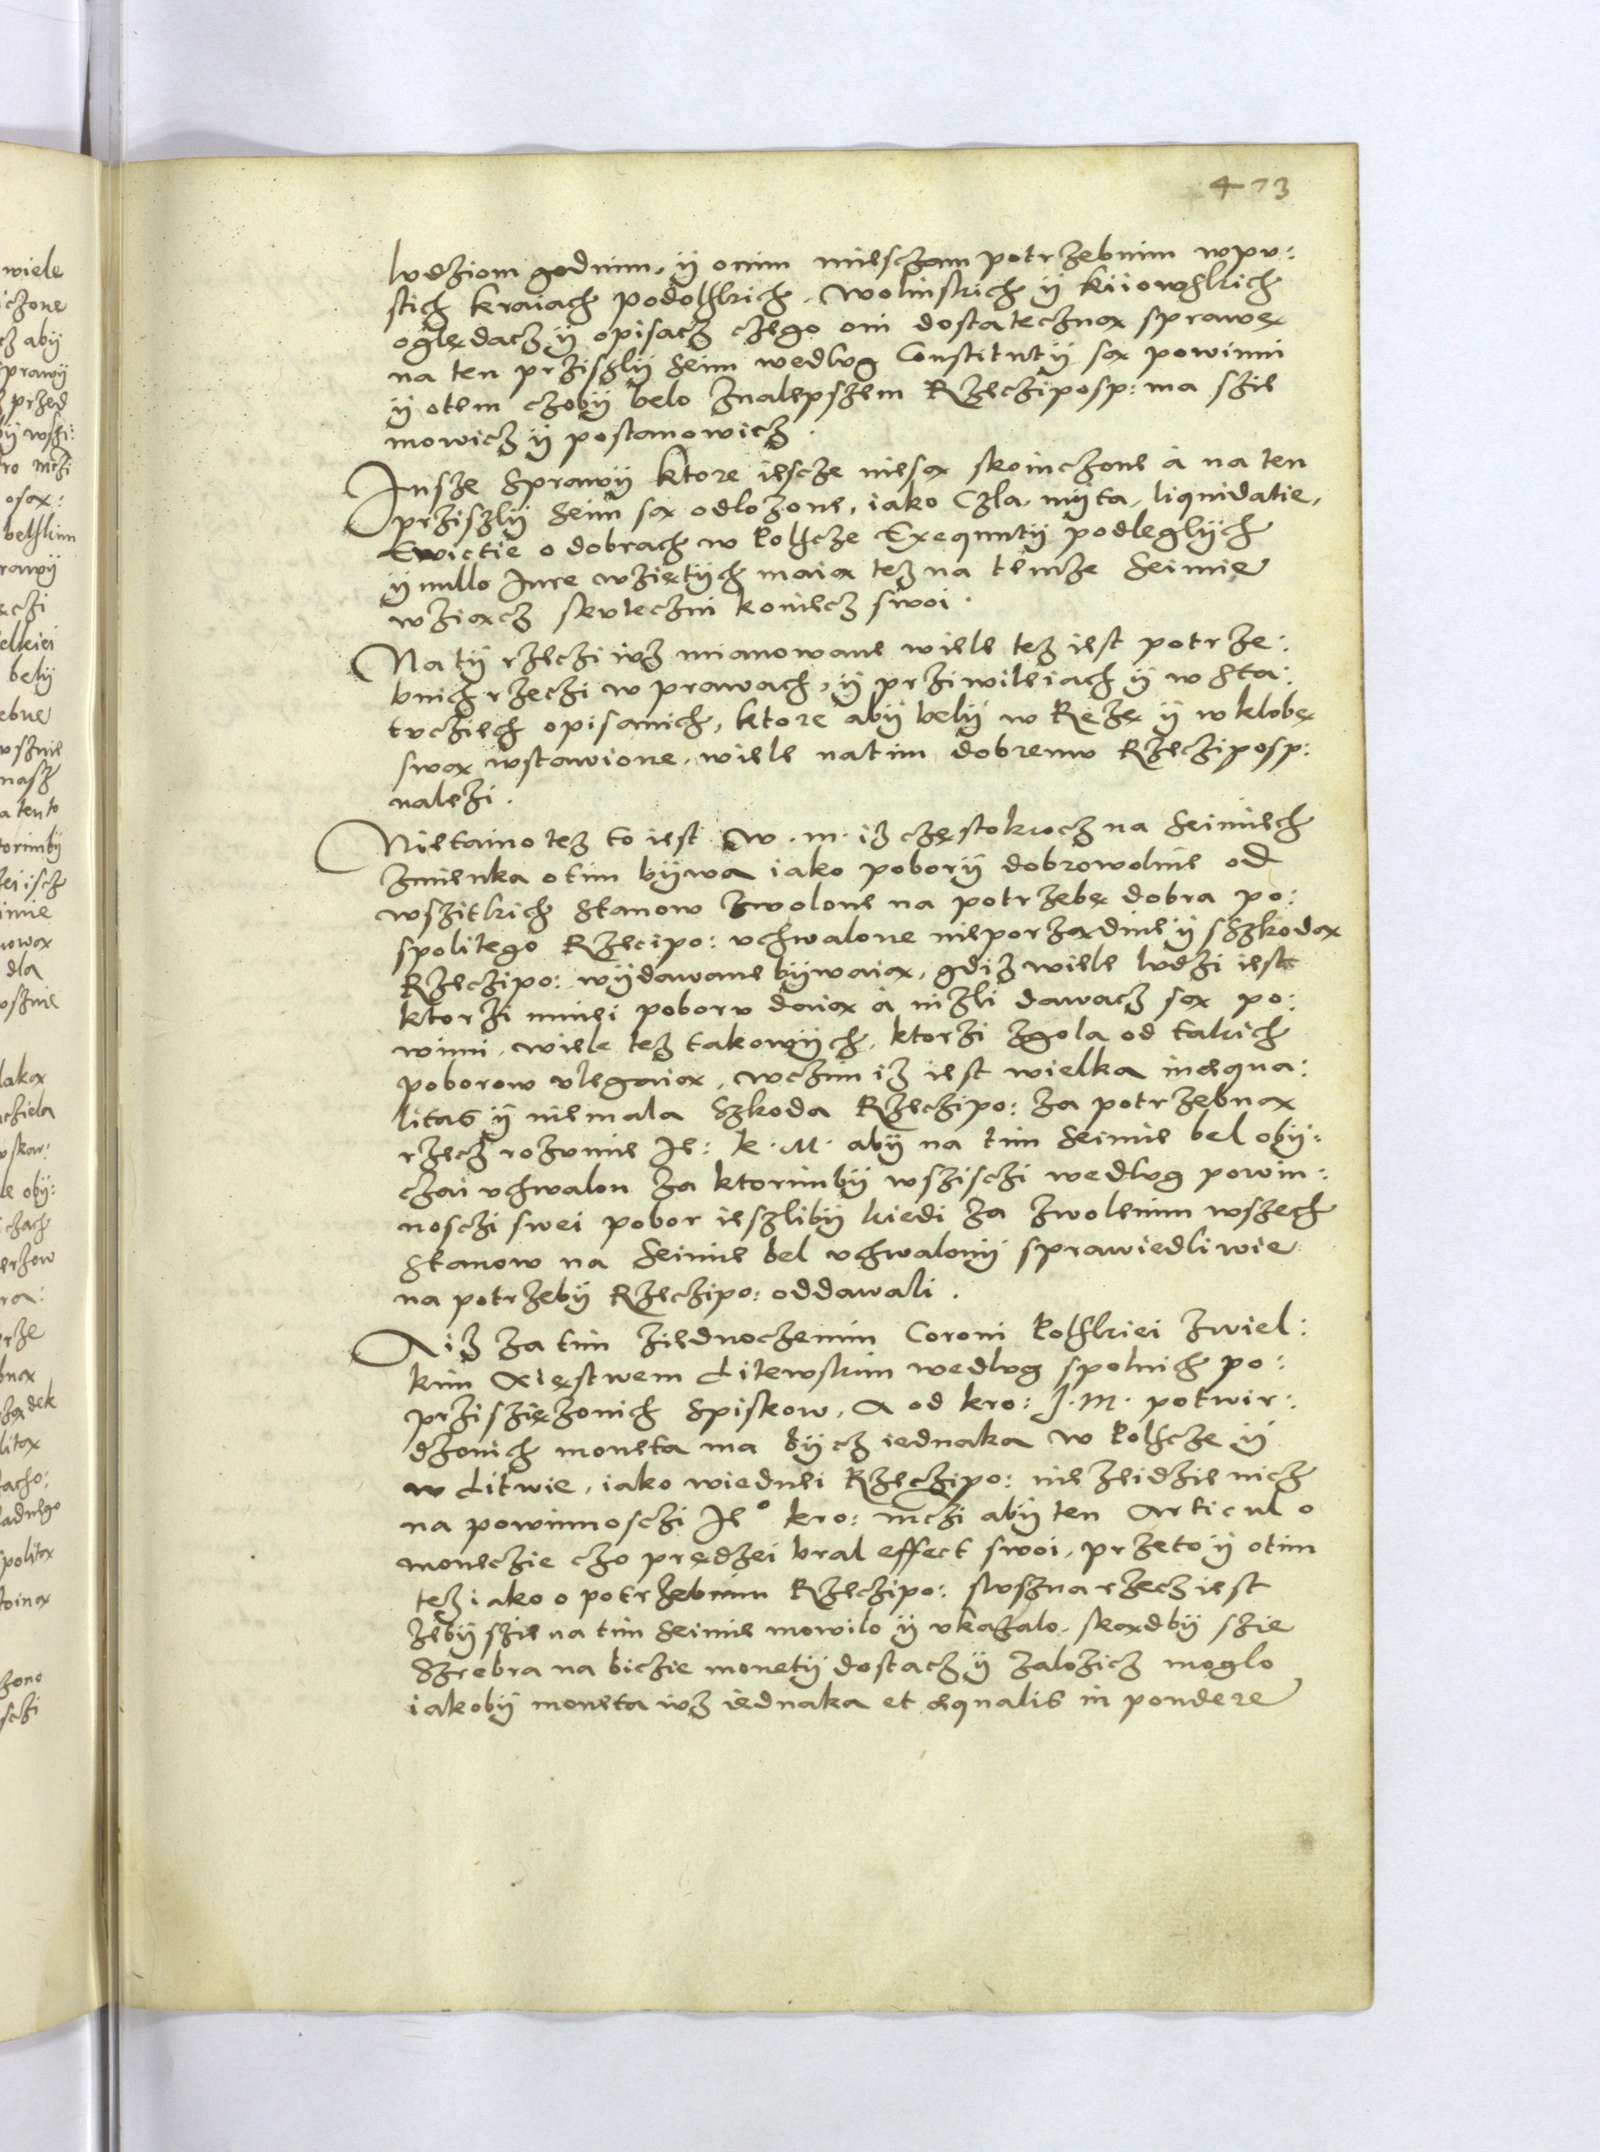 473
ludziom godnim, ÿ onim mieisczam potrzebnim wpu:
stich kraiach podolskich, wolinskich ÿ kiiowskich
oględacz ÿ opisacz czego oni dostatecznąx sprawę
na ten prziszlÿ Seim wedlug Constitutÿ sąx powinni
ÿ otem czobÿ belo Znalepszem Rzecziposp: ma szie
mowicz ÿ postanowicz.
Insze Sprawÿ ktore iescze niesąx skoinczone à na ten
prziszlÿ Seim sąx odlozone, iako Czla mÿta, liquidatie,
Ewictie o dobrach w Polscze Exequutÿ podleglÿch
ÿ nullo Iure wziętÿch maiąx tez na temze Seimie
wziąxcz skuteczni koniecz swoi.
Na tÿ rzeczi iuz mianowane wiele tez iest potrze:
bnich rzeczi w prawach, ÿ prziwileiach ÿ w Sta:
tucziech opisanich, ktore abÿ belÿ w Rezę ÿ w klobę
swąx wstawione, wiele natim dobremu Rzecziposp:
nalezi.
Nietaino tez to iest W. M. iz częstokrocz na Seimiech
Zmienka otim bÿwa iako poborÿ dobrowolnie od
wszitkich Stanow Zwolone na potrzebę dobra po:
spolitego Rzecipo: uchwalone nieporząxdnie ÿ s Szkodąx
Rzeczipo: wÿdawane bÿwaiąx, gdiz wiele ludzi iest
ktorzi mniei poboru daiąx à nizli dawacz sąx po:
winni, wiele tez takowÿch, ktorzi Zgola od takich
poborow ulegaiąx, wczim iz iest wielka inaequa:
litas ÿ niemala Szkoda Rzeczipo: Za potrzebnąx
rzecz rozumie Ie: K. M. abÿ na tim Seimie bel obÿ:
czai uchwalon Za ktorimbÿ wsziszczi wedlug powin:
nosczi swei pobor ieszlibÿ kiedi Za Zwolenim wszech
Stanow na Seimie bel uchwalonÿ sprawiedliwie
na potrzebÿ Rzeczipo: oddawali.
A iz Za tim Ziednoczenim Coroni Polskiei Zwiel:
kim Xięstwem Litewskim wedlug spolnich po:
prziszięzonich Spiskow, A od kro: J. M. potwir:
dzonich moneta ma bÿcz iednaka w Polscze ÿ
w Litwie, iako wiednei Rzeczipo: nie Zeidzie nicz
na powinnosczi Ie° kro: mczi abÿ ten Articul o
moneczie czo prędzei bral effect swoi, przeto ÿ otim
tez iako o potrzebnim Rzeczipo: sluszna rzecz iest
Zebÿ szie na tim Seimie mowilo ÿ ukazalo, skąxdbÿ szie
Szrebra na biczie monetÿ dostacz ÿ Zalozicz moglo
iakobÿ moneta iuz iednaka et aequalis in pondere